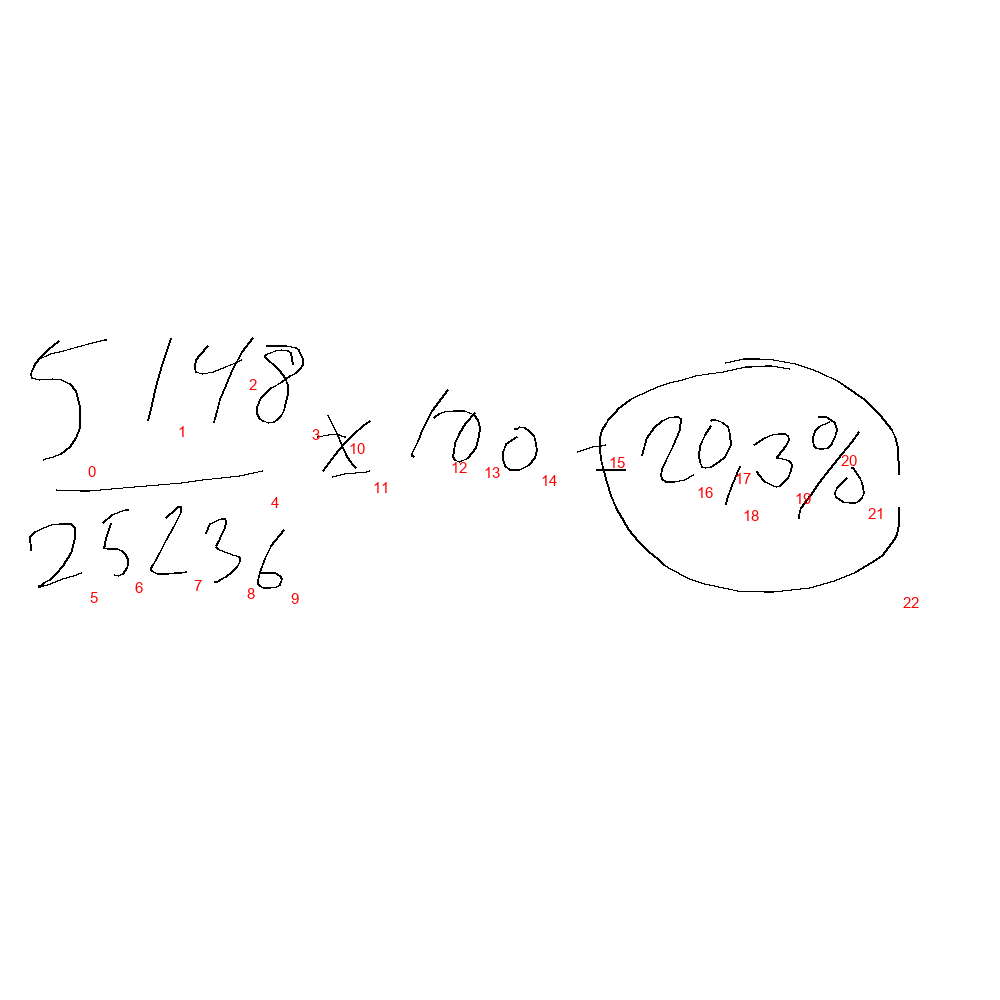 5148
x 100 = 20,3%
25236
0 1 2 3 4 5 6 7 8 9 10 11 12 13 14 15 16 17 18 19 20 21 22